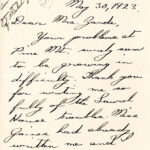 May 30, 1923.
Dear Mrs. Zande,
Your problems at
Pine Mt. surely seem
to be growing in
difficulty. Thank you
for writing me so
fully of the Laurel
House trouble. Miss
Gaines had already
written me and